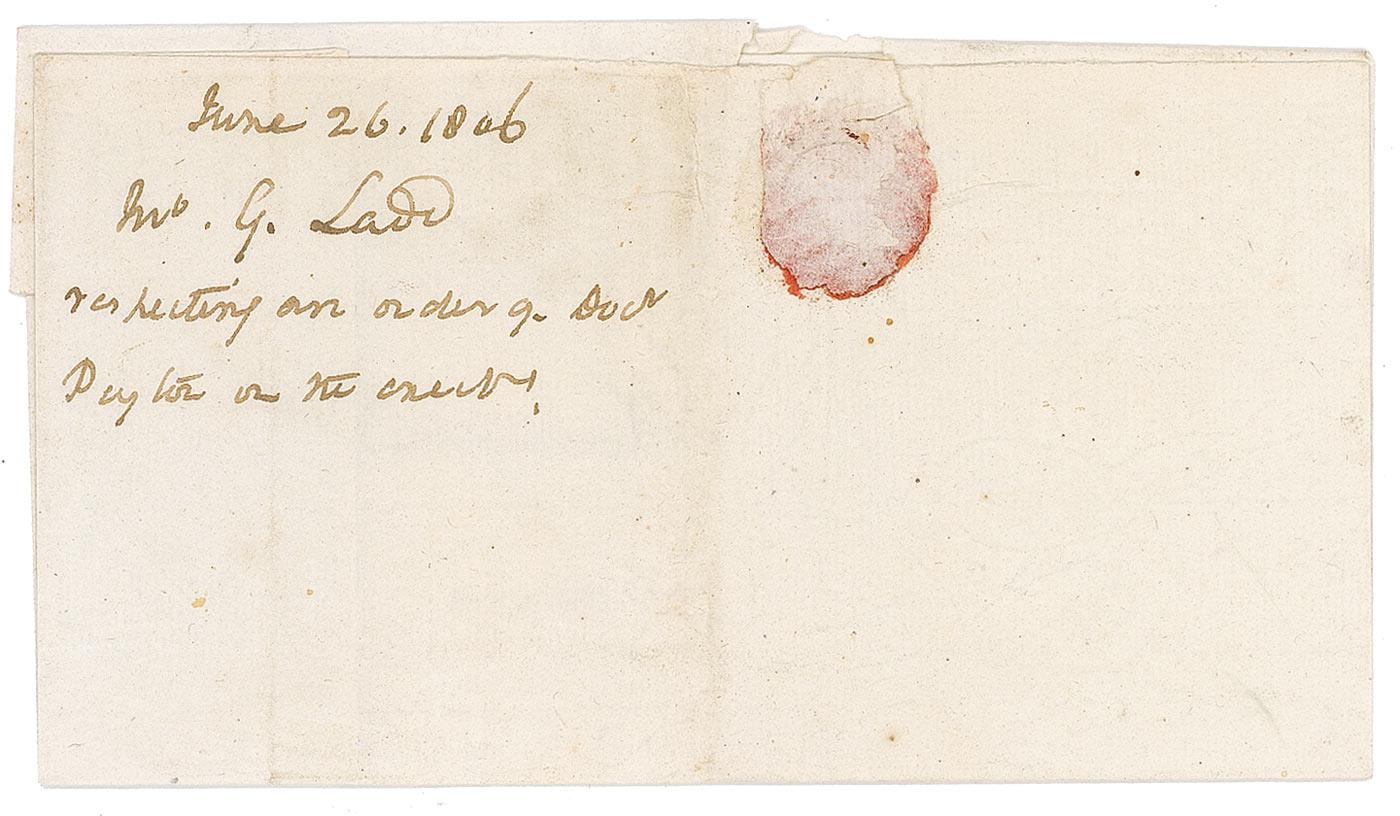 June 26. 1806
Mr. G. Ladd
respecting an order g. Doct
Peyton on the